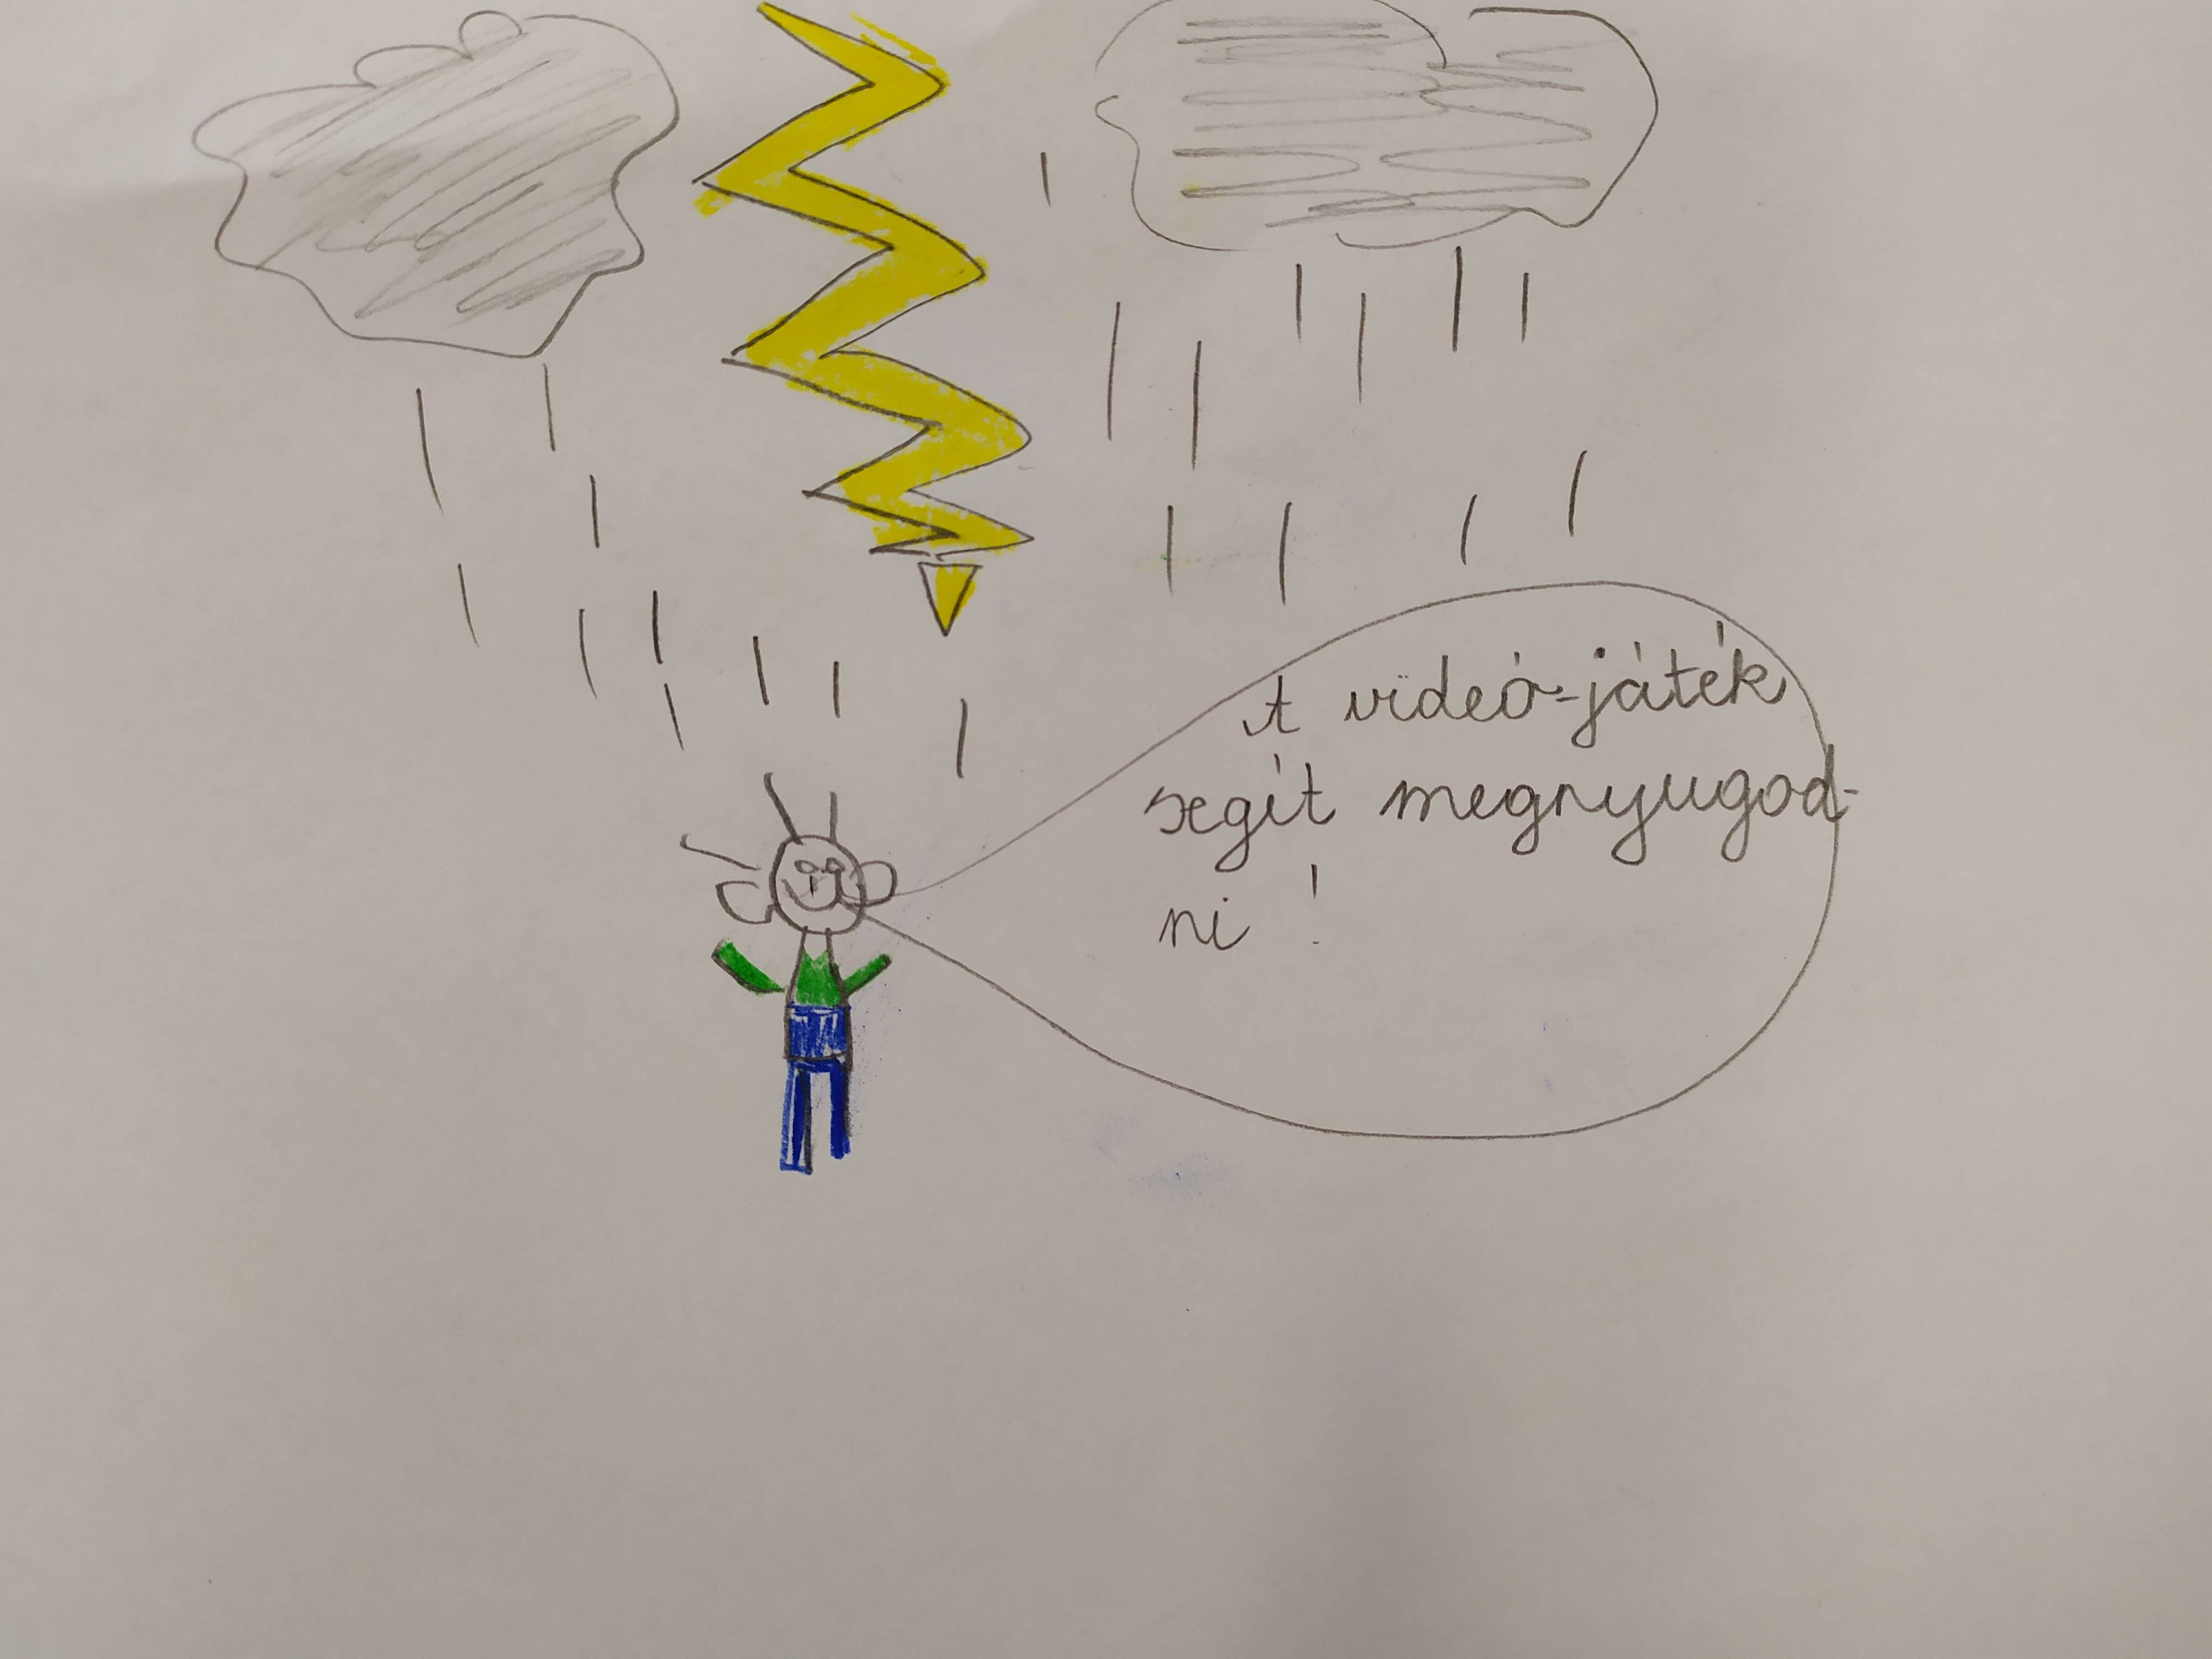 A videó-játék
segít megnyugod-
ni !